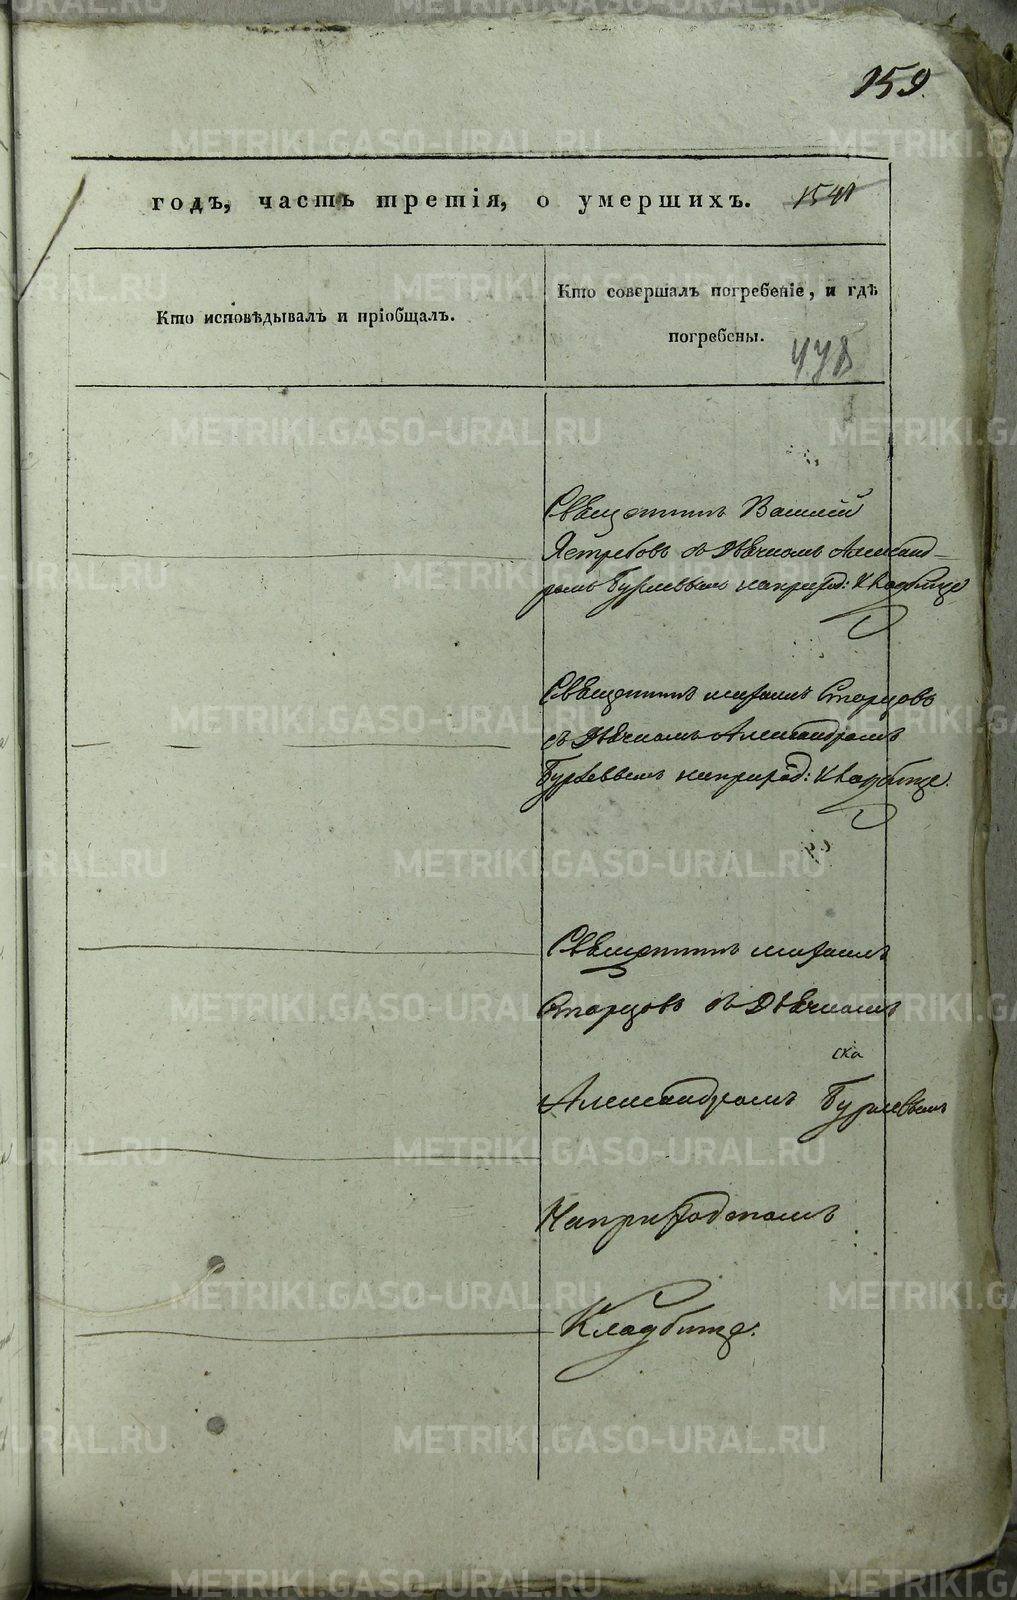 159.
годъ, часть третія, о умершихъ. 1541
Кто исповѣдывалъ и пріобщалъ.
Кто совершалъ погребеніе, и гдѣ
погребены.
448
Священникъ Василій
Ястребовъ съ Дьячкомъ Александ-
ромъ Бурлеввымъ наприход: Кладбище
Священникъ михаилъ Старцовъ
съ Дьячкомъ Александромъ
наприход: Кладбище.
Священникъ михаилъ
Старцовъ съ Дьячкомъ
ска
Александромъ
Наприходскомъ
Кладбище.
METRIKI.GASO-URAL.RU